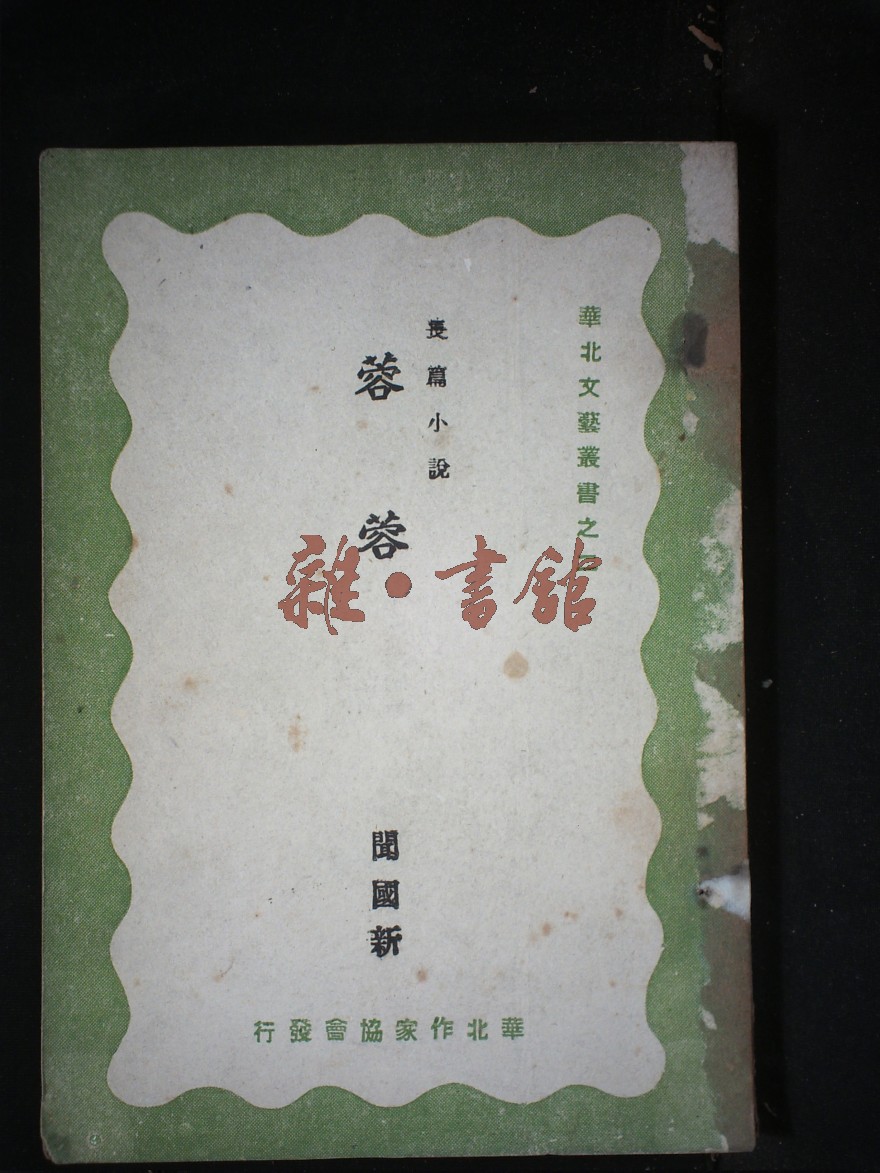 華北文藝叢書之
長篇小說
蓉蓉
聞國新
華北作家協會發行
雜·書館